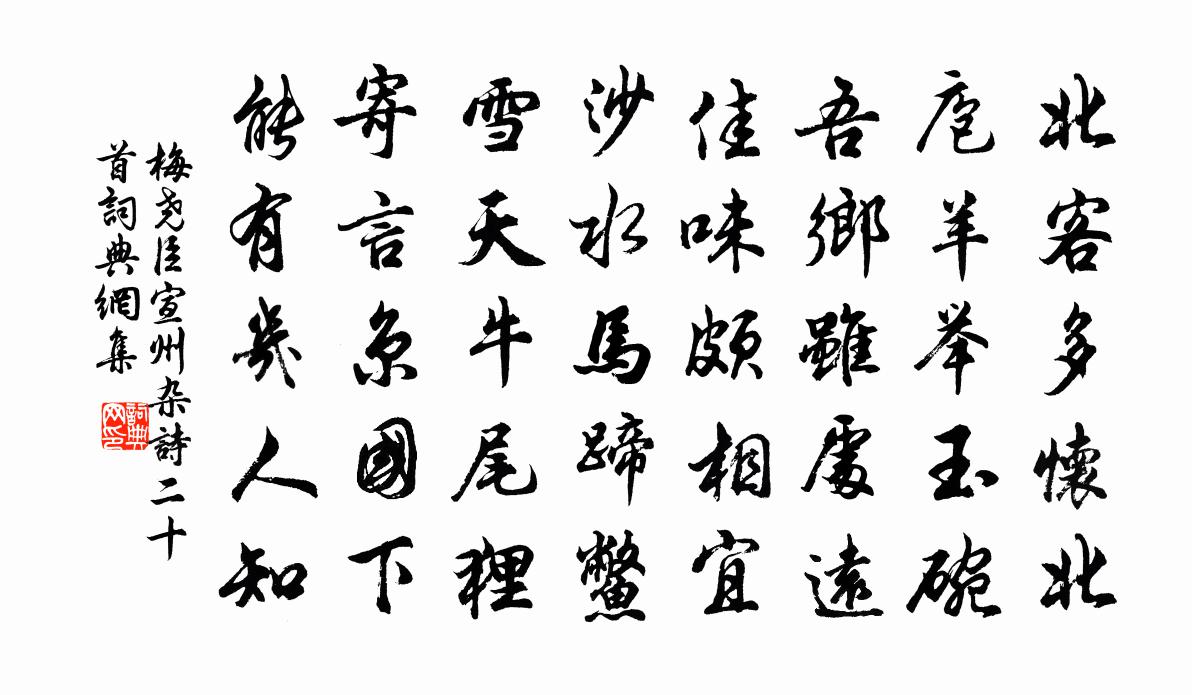 北客多懷北
庖羊舉玉碗
吾鄉雖處遠
佳味頗相宜
沙水馬蹄鱉
雪天牛尾狸
寄言京國下
能有幾人知
梅尧臣宣州杂詩二十
首詞典網集
詞典
网印